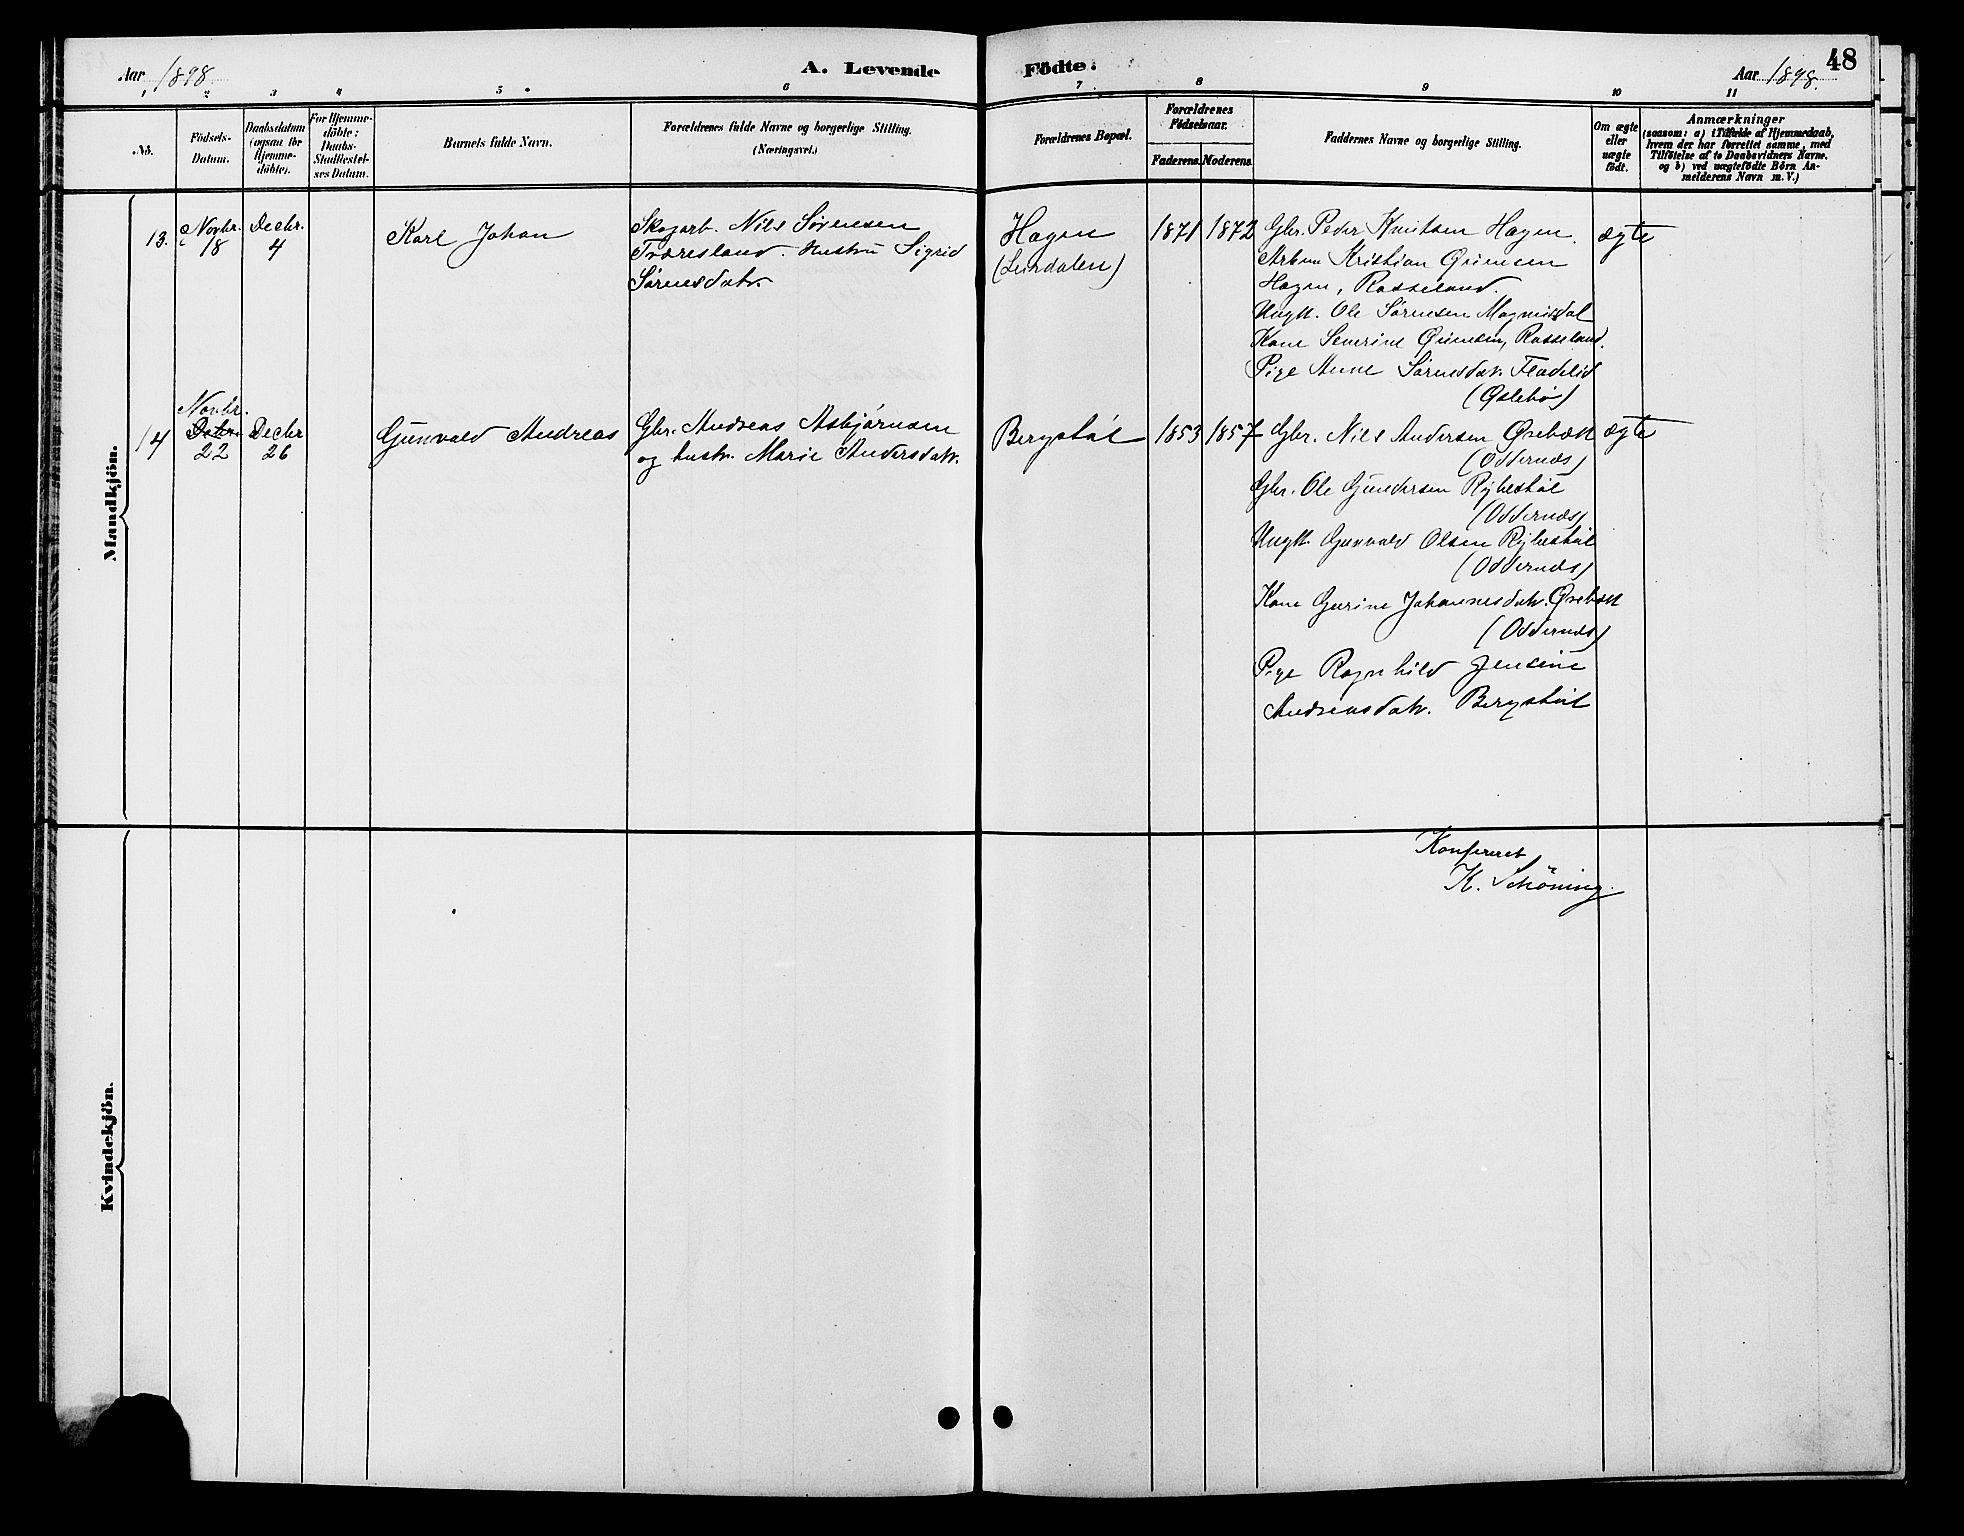 Aar 1898. A. Levende Födte. Aar 1898. 48
1 2 3 4 5 6 7 8 9 10 11
No. Födsels-Datum. Daabsdatum (ogsaa for Hjemmedöbte). For Hjemmedöbte: Daabs-Stadfæstelses Datum. Barnets fulde Navn. Forældrenes fulde Navne og borgerlige Stilling. (Næringsvei.)
Forældrenes Bopæl. Forældrenes Födselsaar. Faderens. Moderens. Faddernes Navne og borgerlige Stilling. Om ægte eller uægte født.
Anmærkninger
(saasom: a) i Tilfælde af Hjemmedaab,
hvem der har forrettet samme, med
Tilföielse af to Daabsvidners Navne,
og b) ved uægtefödte Börn Anmelderens Navn m. V.)
Mandkjön.
13. Novbr. 18 Decbr. 4 Karl Johan
Skogarb. Nils Sørensen
Tveresland. Hustru Sigrid
Sørensdatr.
Hagen
(Leirdalen)
1871 1872
Gbr. Peder Knutsen Hagen.
Kristian
Hagen, Rosseland.
Ungk. Ole Sørensen Magnisdal
Kone Severine Rosseland.
Pige Anne Sørensdatr. Fladelid
(Øslebø)
ægte
14 Novbr. 22 Decbr 26 Gunvald Andreas
Gbr. Andreas Asbjørnsen
og hustr. Marie Andersdatr.
Bergstøl
1853 1857
Gbr. Nils Andersen Ørebæk
(Oddernæs)
Gbr. Ole Gundersen Rybestøl
(Oddernæs)
Ungk. Gunvald Olsen Rybestøl
(Oddernæs)
Kone Gurine Johannesdatr. Ørebæk
(Oddernæs)
Pige Ragnhild Jensine
Andreasdatr. Bergstøl
ægte
Kvindekjön.
Konfereret
K. Schöning.